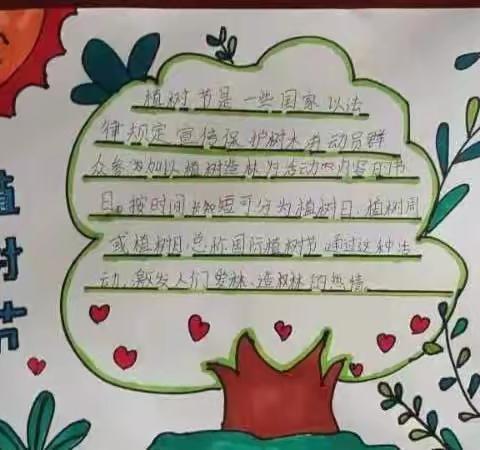 植树节
植树节是一些国家以法
律规定宣传保护树木并动员群
众参加以植树造林为活动内容的节
日。按时间长短可分为植树日、植树周
或植树月,总称国际植树节,通过这种活
动,激发人们爱林、造林的热情。